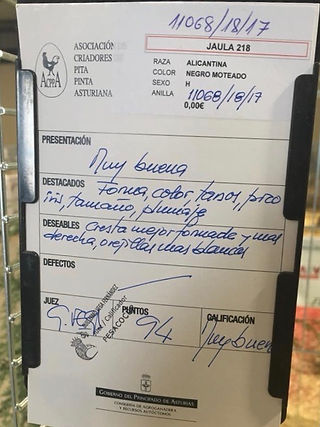 11068/18/17
ASOCIACIÓN DE
CRIADORES DE
PITA
PINTA
ASTURIANA
ACPPA
JAULA 218
RAZA ALICANTINA
COLOR NEGRO MOTEADO
SEXO H
ANILLA 11068/18/17
0,00€
PRESENTACIÓN
Muy buena
DESTACADOS Forma, color, tarsos, pico
iris, tamaño, plumaje
DESEABLES Cresta mejor formada y mas
derecha, orejillas mas blancas
DEFECTOS
JUEZ
PUNTOS
94
CALIFICACIÓN
Muy buena
GOBIERNO DEL PRINCIPADO DE ASTURIAS
CONSEJERÍA DE AGROGANADERÍA
Y RECURSOS AUTÓCTONOS